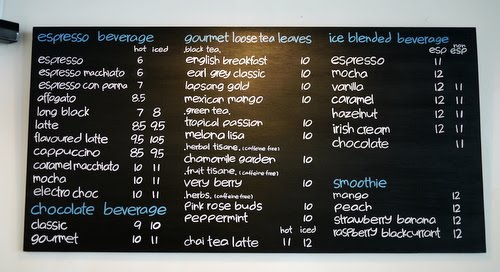 espresso beverage
hot iced
espresso 6
espresso macchiato 6
espresso con panna 7
affagato 8.5
long black 7 8
latte 8.5 9.5
flavoured latte 9.5 10.5
cappuccino 8.5 9.5
caramel macchiato 10 11
mocha 10 11
electro choc 10 11
chocolate beverage
classic 9 10
gourmet 10 11
gourmet loose tea leaves
.black tea.
english breakfast 10
earl grey classic 10
lapsang gold 10
mexican mango 10
.green tea.
tropical passion 10
melona lisa 10
.herbal tisane. (caffeine free)
chamomille garden 10
.fruit tisane. (caffeine free)
very berry 10
.herbs. (caffeine free)
pink rose buds 10
peppermint 10
hot iced
chai tea latte 11 12
ice blended beverage
esp non esp
espresso 11
mocha 12
vanilla 12 11
caramel 12 11
hazelnut 12 11
irish cream 12 11
chocolate 11
smoothie
mango 12
peach 12
strawberry banana 12
raspberry blackcurrant 12